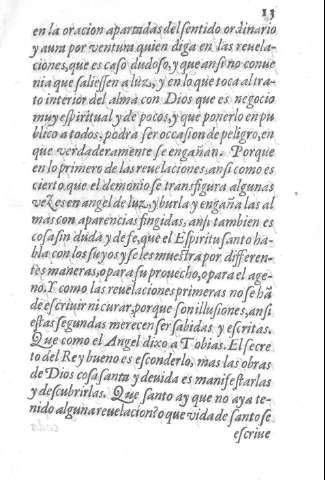 13
en la oracion apartadas del sentido ordinario
y aun por ventura quien diga en las reuela-
ciones, que es caso dudoso, y que ansi no conue
nia que saliessen a luz, y en lo que toca al tra-
to interior del alma con Dios que es negocio
muy espiritual y de pocos, y que ponerlo en pu
blico a todos, podra ser occasion de peligro, en
que verdaderamente se engañan. Porque
en lo primero de las reuelaciones, ansi como es
cierto, que el demonio se transfigura algunas
vezes en angel de luz, y burla y engaña las al
mas con aparencias fingidas, ansi tambien es
cosa sin duda y de fe, que el Espiritu santo ha-
bla con los suyos y se les muestra por differen-
tes maneras, o para su prouecho, o para el age-
no. Y como las reuelaciones primeras no se hã
de escriuir ni curar, porque son illusiones, ansi
estas segundas merecen ser sabidas y escritas.
Que como el Angel dixo a Tobias. El secre
to del Rey bueno es esconderlo, mas las obras
de Dios cosa santa y deuida es manifestarlas
y descubrirlas. Que santo ay que no aya te-
nido alguna reuelacion? o que vida de santo se
escriue